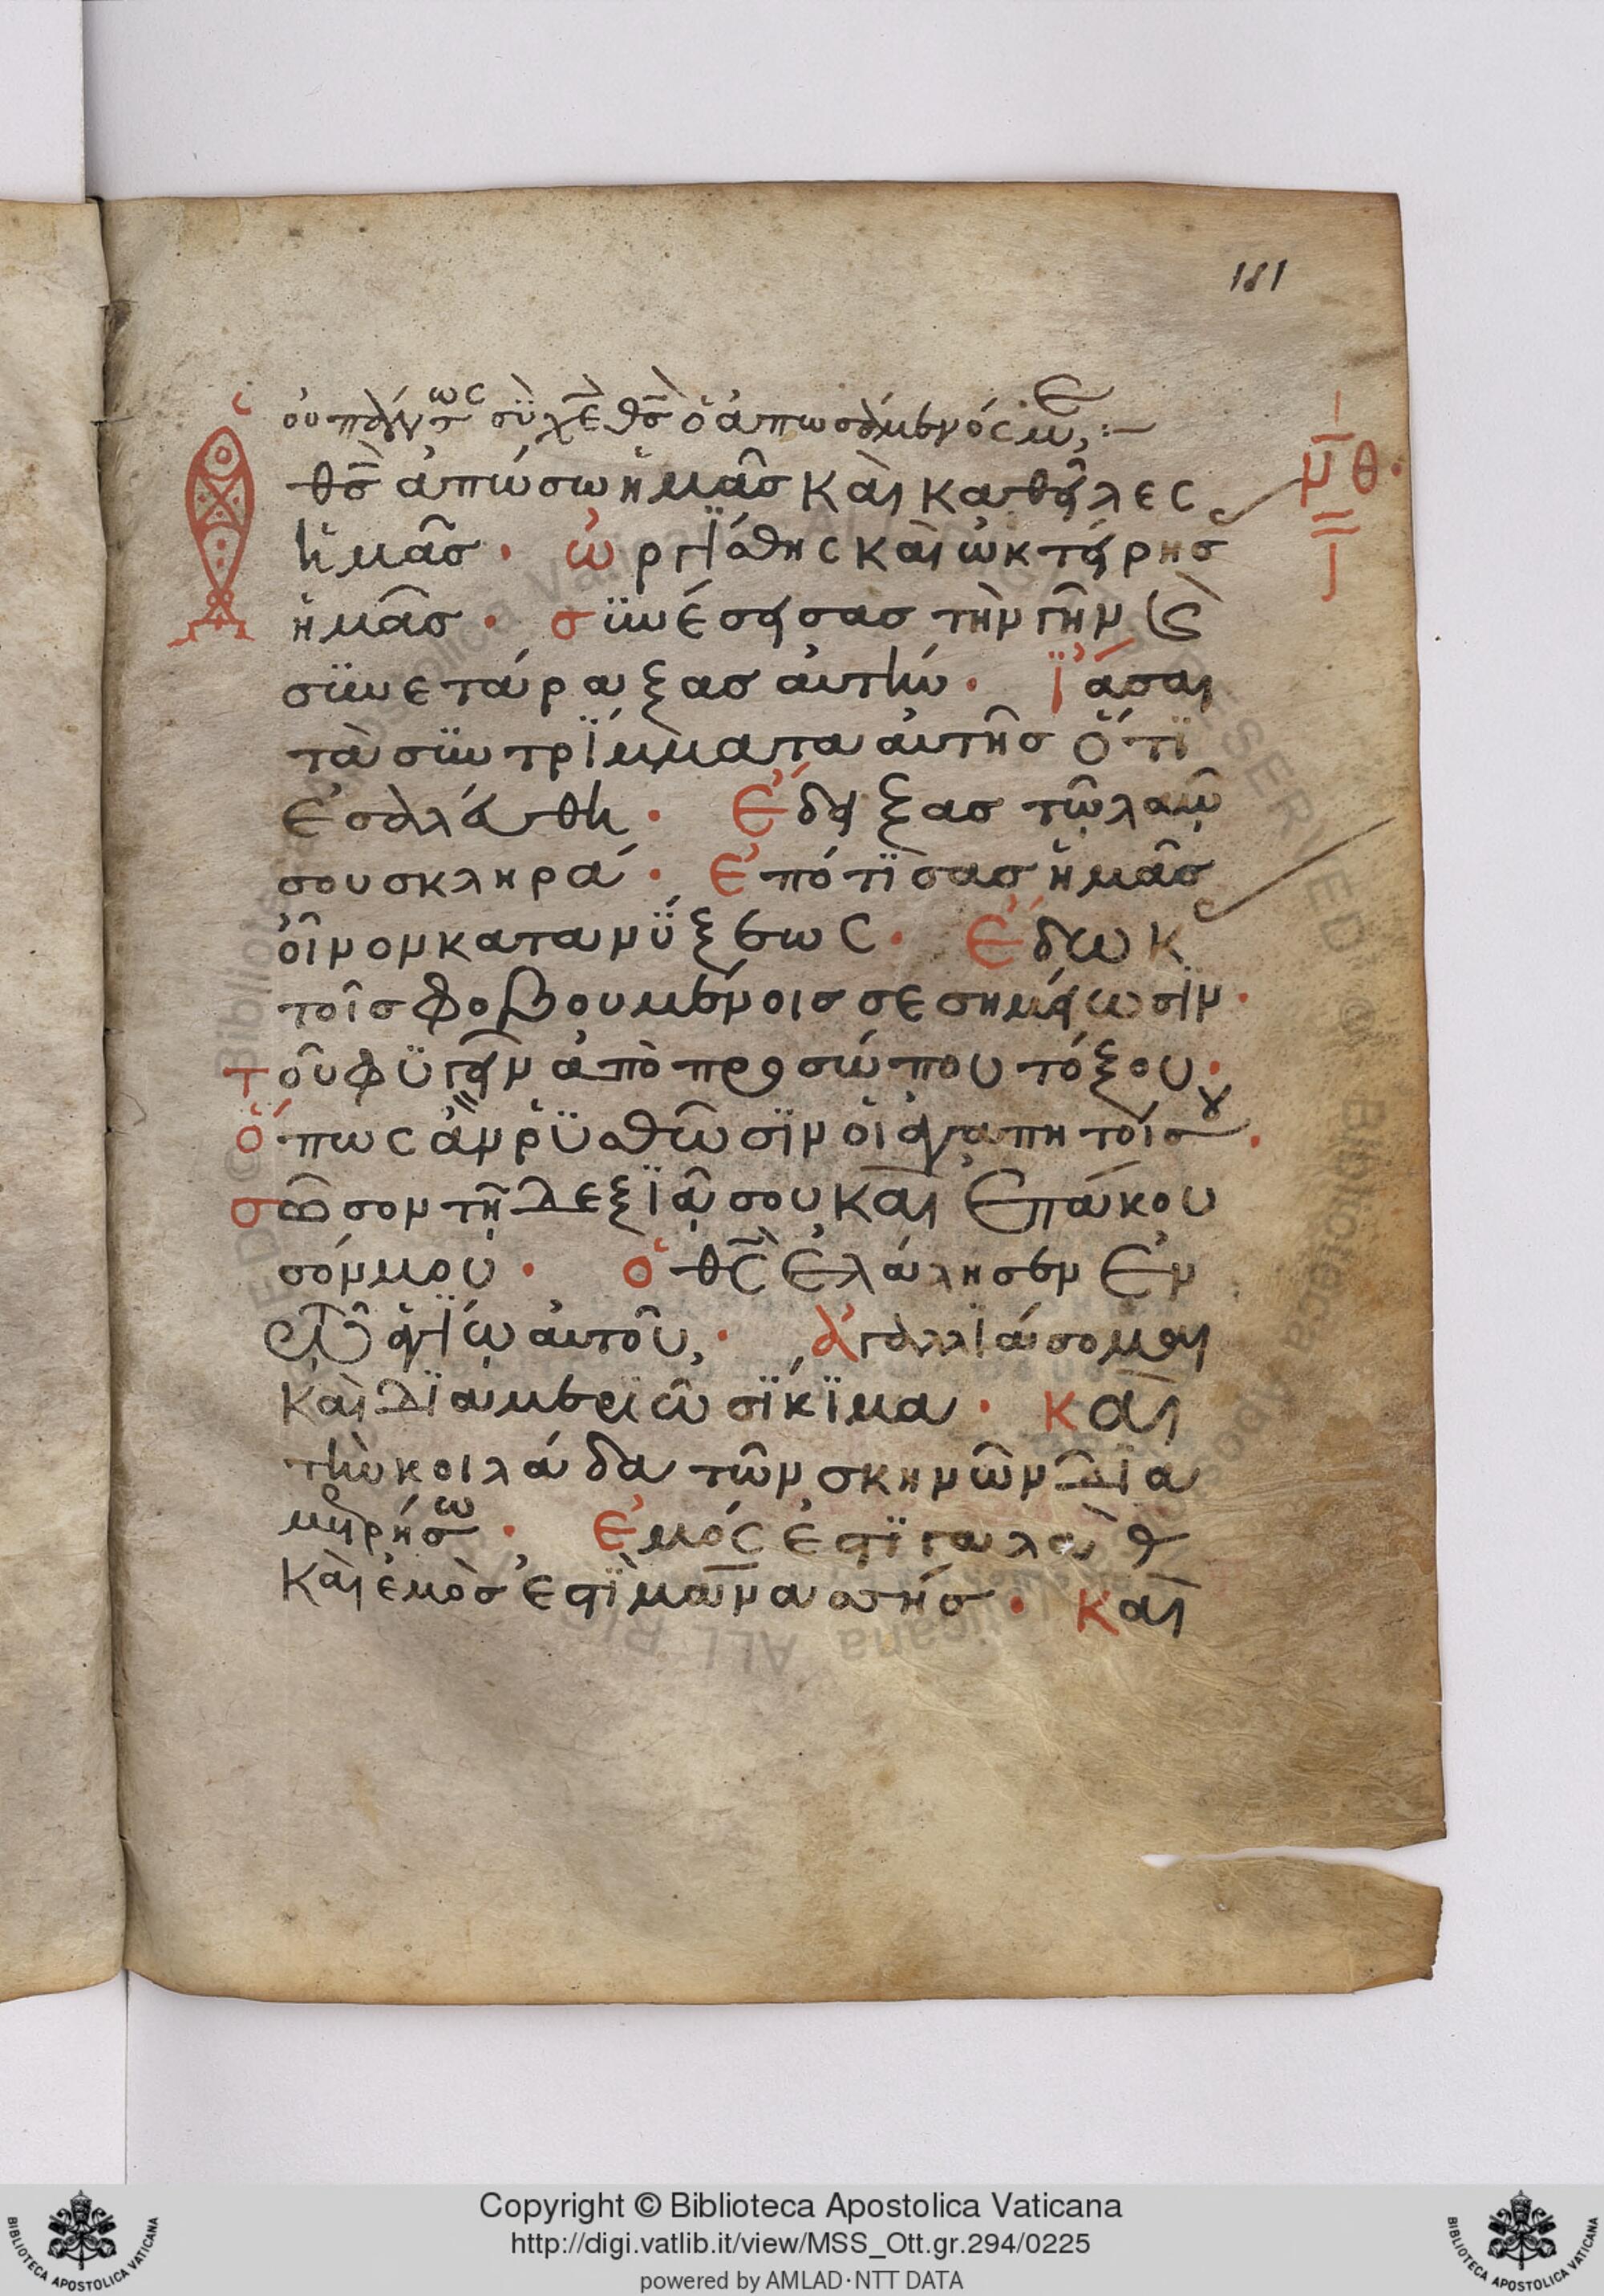 181
οὐ πάντως σὺ χε θς ὁ ἀπωσάμενός με :—
θς ἀπώσω ἡμᾶσ καὶ καθεῖλες
μ θ
ἡμᾶσ · ὠργΐσθης καὶ ὠκτείρησ
ἡμᾶσ · σϋνέσεισασ τὴν γῆν καὶ
σϋνετάραξασ ἀυτήν · ϊ̓άσαι
τὰ σϋντρΐμματα ἀυτῆσ ὅτϊ
ἐσαλεύθη · ἔδειξασ τῶ λαῶ
σου σκληρά · ἐπότϊσασ ἡμᾶσ
ὀῖνον κατανΰξεως · ἔδωκ
τοῖσ φοβουμένοισ σε σημείωσϊν ·
τοῦ φϋγεῖν ἀπὸ προσώπου τόξου ·
ὅπως ἂν ρϋσθῶσϊν οἱ ἀγαπητοίσου ·
σῶσον τῆ δεξϊᾶ σου καὶ ἐπάκου
σόν μου · ὁ θς ἐλάλησεν ἐν
τῶ ἁγΐω ἀυτοῦ, · ἀγαλλϊάσομαι
καὶ δϊαμεριῶ σΐκϊμα · καὶ
τὴν κοιλάδα τῶν σκηνῶν δϊα
μετρήσω · ἐμός ἐστϊ γαλαὰδ
καὶ ἐμὸσ ἐστϊ μανασσήσ · καὶ
Copyright © Biblioteca Apostolica Vaticana
http://digi.vatlib.it/view/MSS_Ott.gr.294/0225
powered by AMLAD·NTT DATA
BIBLIOTECA APOSTOLICA VATICANA
BIBLIOTECA APOSTOLICA VATICANA